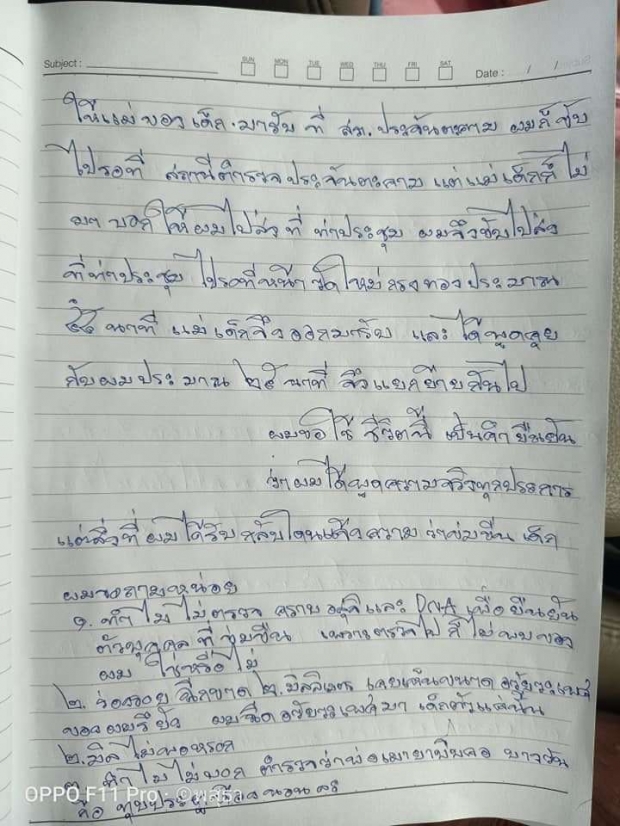 Subject :
SUN MON TUE WED THU FRI SAT
Date : / /
ให้แม่ของเด็ก มารับ ที่ สภ. ประจันตคาม ผมก็ขับ
ไปรอที่ สถานีตำรวจประจันตะคาม แต่แม่เด็กก็ไม่
มา บอกให้ผมไปส่งที่ ท่าประชุม ผมจึงขับไปส่ง
ที่ท่าประชุม ไปรอที่หน้าวัดใหม่ ประมาณ
นาที แม่เด็กจึงออกมารับ และได้พูดคุย
กับผมประมาณ ๒๕ นาที จึงแยกย้ายกันไป
ผมขอใช้ชีวิตนี้ เป็นคำยืนยัน
ว่าผมได้พูดความจริงทุกประการ
แต่สิ่งที่ผมได้รับ กลับโดนแจ้งความว่าข่มขืน เด็ก
ผมขอถามหน่อย
๑. ทำไมไม่ตรวจ คราบอสุจิและ DNA เพื่อยืนยัน
ตัวบุคคลที่ข่มขืน เพราะตรวจไปก็ไม่พบของ
ผม ใช่หรือไม่
๒. ร่องรอย ฉีกขาด ๒. มิลลิเมตร เคยเห็นขนาดอวัยวะเพศ
ของผมรึยัง ผมฉีดอวัยวะเพศมา เด็กตัวแค่นั้น
๒. มิลไม่พอหรอก
๓. ทำไมไม่บอก ตำรวจว่าพ่อเมายาบีบคอ บางวัน
ก็ ทุบประตู
OPPO F11 Pro